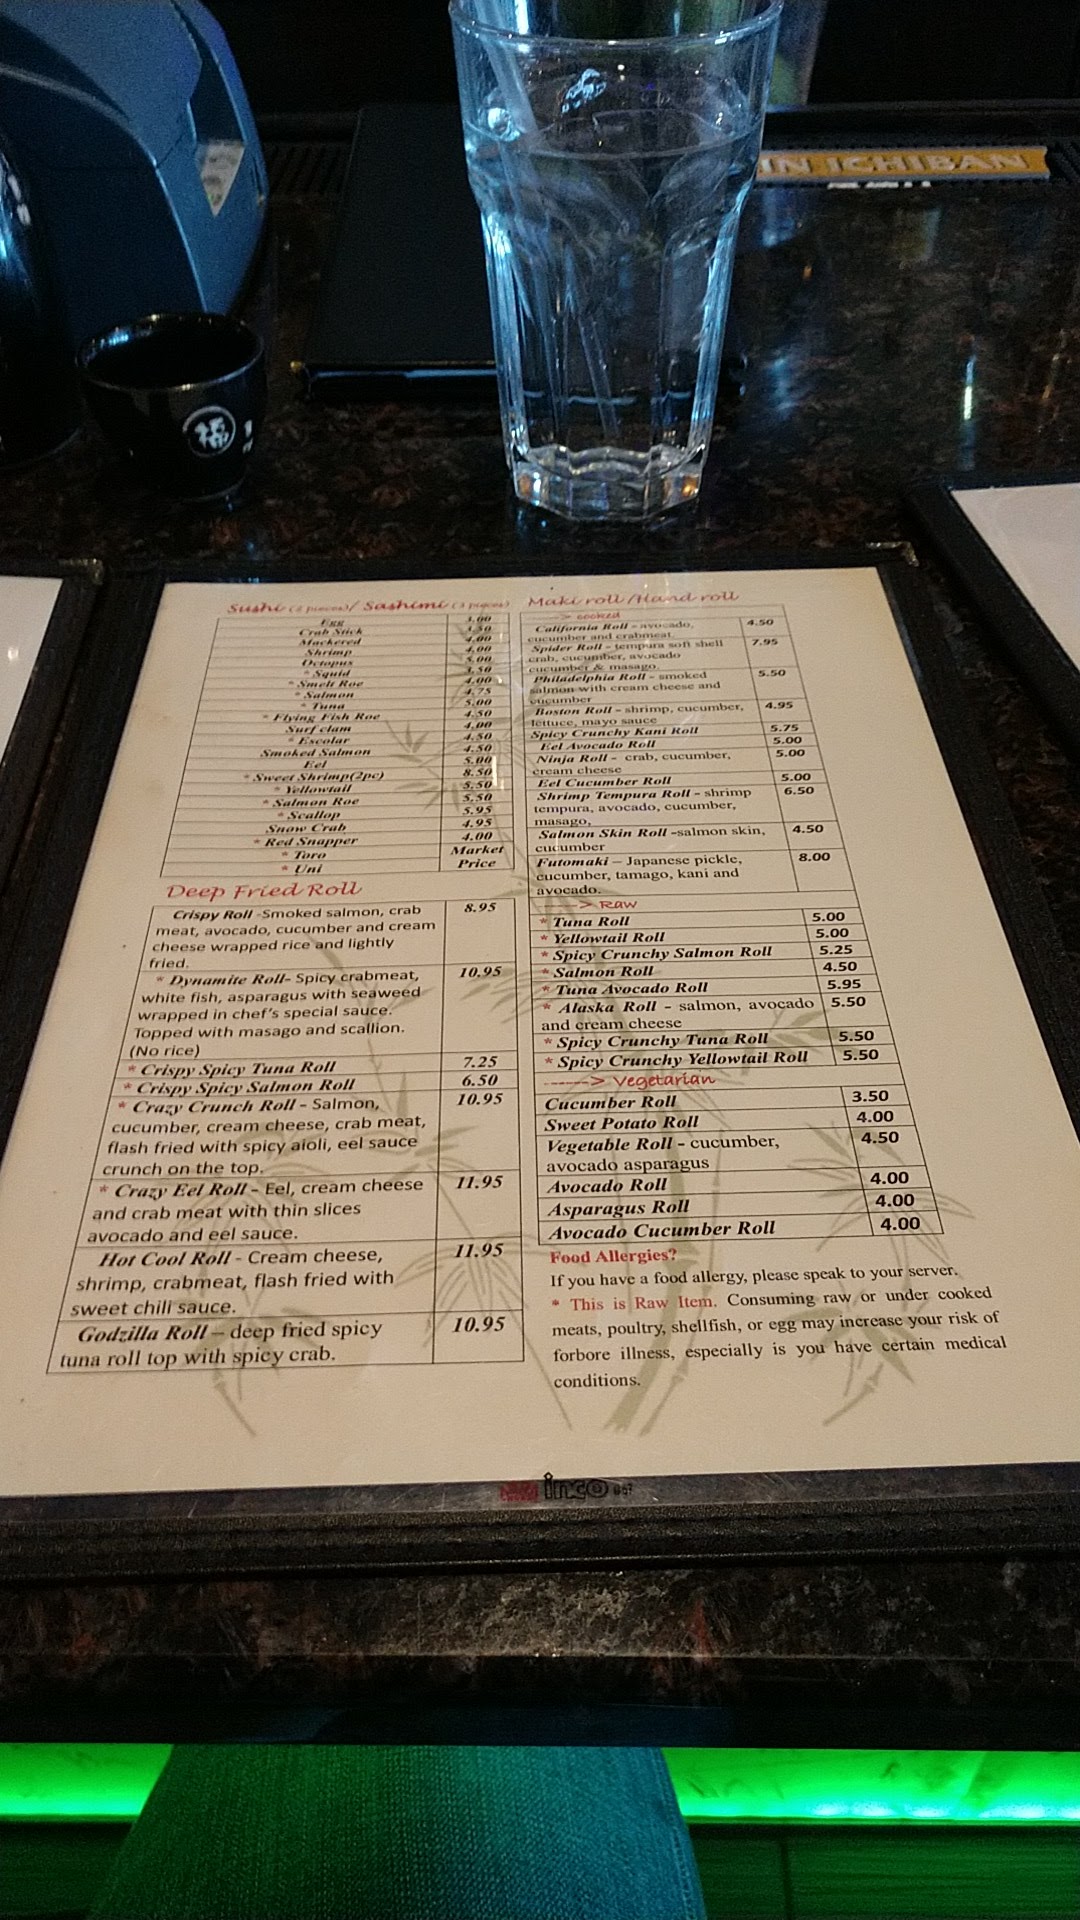 IN ICHIBAN
Sushi (2 pieces)/ Sashimi (3 pieces)
Egg 3.00
Crab Stick 3.50
Mackered 4.00
Shrimp 4.00
Octopus 5.00
* Squid 3.50
* Smelt Roe 4.00
* Salmon 4.75
* Tuna 5.00
* Flying Fish Roe 4.50
Surf clam 4.00
* Escolar 4.50
Smoked Salmon 4.50
Eel 5.00
* Sweet Shrimp(2pc) 8.50
* Yellowtail 5.50
* Salmon Roe 5.50
* Scallop 5.95
Snow Crab 4.95
* Red Snapper 4.00
* Toro Market
* Uni Price
Deep Fried Roll
Crispy Roll -Smoked salmon, crab 8.95
meat, avocado, cucumber and cream
cheese wrapped rice and lightly
fried.
* Dynamite Roll- Spicy crabmeat, 10.95
white fish, asparagus with seaweed
wrapped in chef's special sauce.
Topped with masago and scallion.
(No rice)
* Crispy Spicy Tuna Roll 7.25
* Crispy Spicy Salmon Roll 6.50
* Crazy Crunch Roll - Salmon, 10.95
cucumber, cream cheese, crab meat,
flash fried with spicy aioli, eel sauce
crunch on the top.
* Crazy Eel Roll - Eel, cream cheese 11.95
and crab meat with thin slices
avocado and eel sauce.
Hot Cool Roll - Cream cheese, 11.95
shrimp, crabmeat, flash fried with
sweet chili sauce.
Godzilla Roll – deep fried spicy 10.95
tuna roll top with spicy crab.
Maki roll /Hand roll
> cooked
California Roll - avocado, 4.50
cucumber and crabmeat.
Spider Roll - tempura soft shell 7.95
crab, cucumber, avocado
cucumber & masago.
Philadelphia Roll - smoked 5.50
salmon with cream cheese and
cucumber
Boston Roll - shrimp, cucumber, 4.95
lettuce, mayo sauce
Spicy Crunchy Kani Roll 5.75
Eel Avocado Roll 5.00
Ninja Roll - crab, cucumber, 5.00
cream cheese
Eel Cucumber Roll 5.00
Shrimp Tempura Roll - shrimp 6.50
tempura, avocado, cucumber,
masago,
Salmon Skin Roll -salmon skin, 4.50
cucumber
Futomaki – Japanese pickle, 8.00
cucumber, tamago, kani and
avocado.
-----> Raw
* Tuna Roll 5.00
* Yellowtail Roll 5.00
* Spicy Crunchy Salmon Roll 5.25
* Salmon Roll 4.50
* Tuna Avocado Roll 5.95
* Alaska Roll - salmon, avocado 5.50
and cream cheese
* Spicy Crunchy Tuna Roll 5.50
* Spicy Crunchy Yellowtail Roll 5.50
------> Vegetarian
Cucumber Roll 3.50
Sweet Potato Roll 4.00
Vegetable Roll - cucumber, 4.50
avocado asparagus
Avocado Roll 4.00
Asparagus Roll 4.00
Avocado Cucumber Roll 4.00
Food Allergies?
If you have a food allergy, please speak to your server.
* This is Raw Item. Consuming raw or under cooked
meats, poultry, shellfish, or egg may increase your risk of
forbore illness, especially is you have certain medical
conditions.